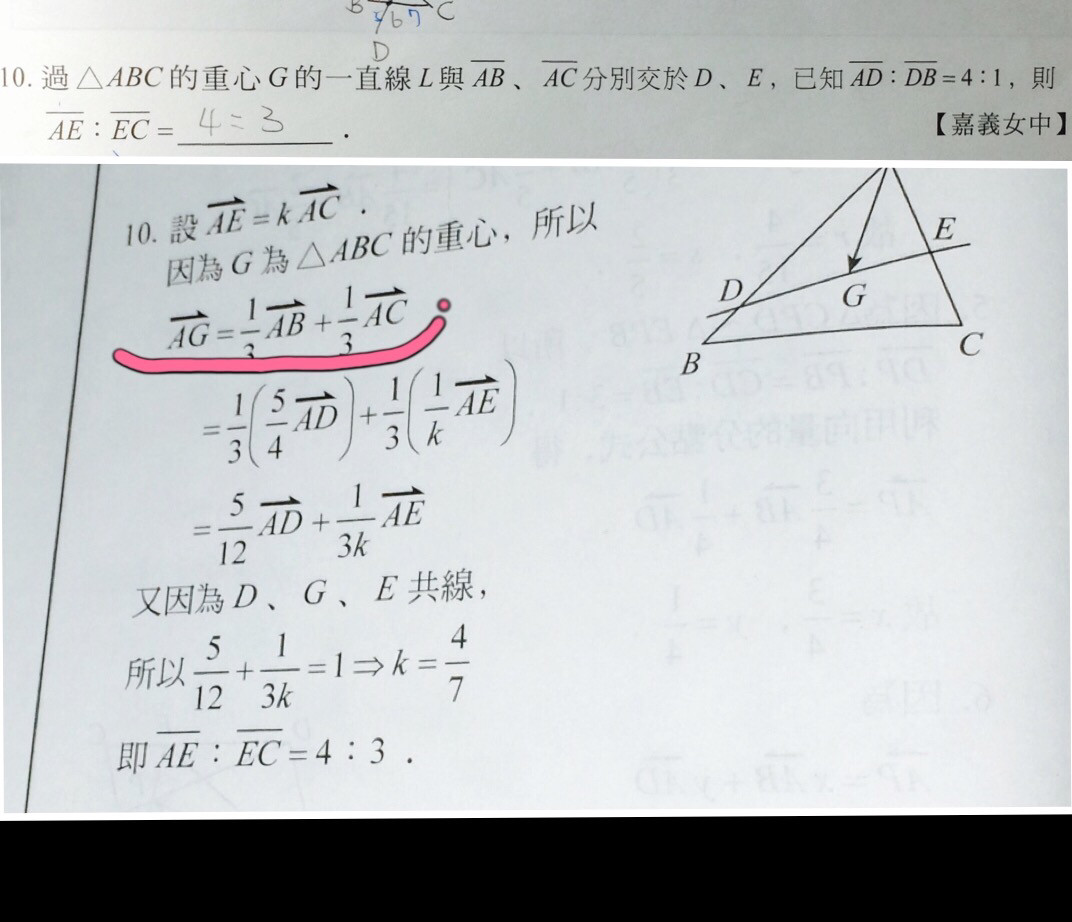 B 5 6 7 C
D
10. 過 △ABC 的重心 G 的一直線 L 與 \overline{AB} 、 \overline{AC} 分別交於 D 、 E ， 已知 \overline{AD} : \overline{DB} = 4 : 1 ， 則
\overline{AE} : \overline{EC} = 4 = 3 . 【嘉義女中】
10. 設 \overrightarrow{AE} = k \overrightarrow{AC} .
因為 G 為 △ABC 的重心， 所以
\overrightarrow{AG} = \frac{1}{3} \overrightarrow{AB} + \frac{1}{3} \overrightarrow{AC}
= \frac{1}{3} ( \frac{5}{4} \overrightarrow{AD} ) + \frac{1}{3} ( \frac{1}{k} \overrightarrow{AE} )
= \frac{5}{12} \overrightarrow{AD} + \frac{1}{3k} \overrightarrow{AE}
又因為 D 、 G 、 E 共線，
所以 \frac{5}{12} + \frac{1}{3k} = 1 ⇒ k = \frac{4}{7}
即 \overline{AE} : \overline{EC} = 4 : 3 .
E
D
G
B
C